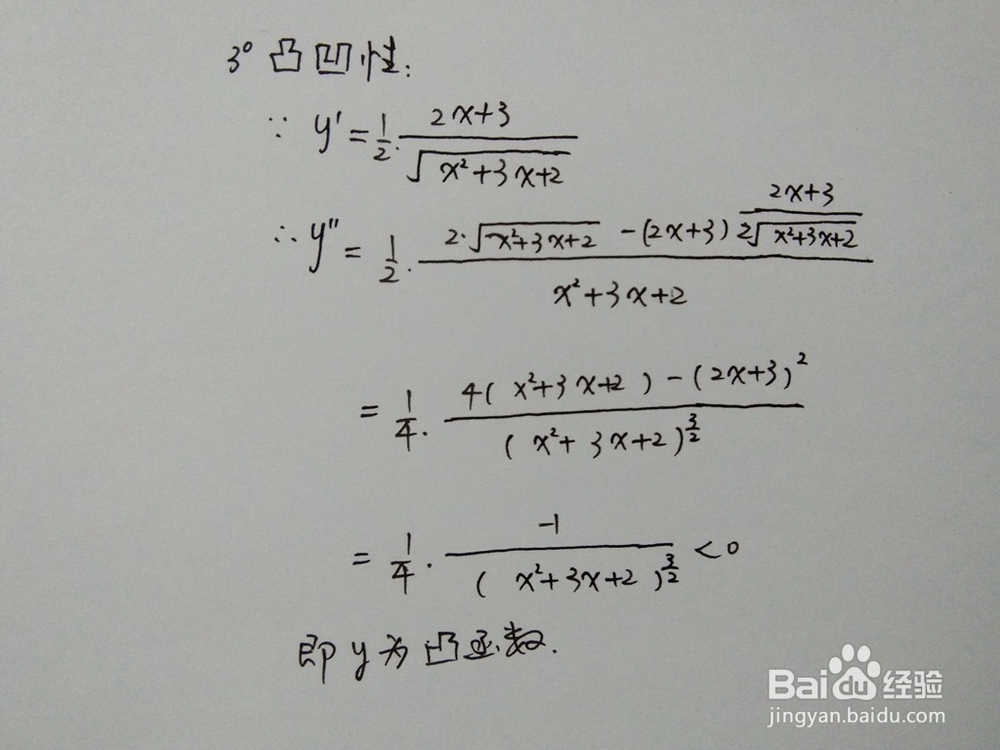 3° 凸凹性:
∵ y' = 1/2 · (2x+3)/√(x²+3x+2)
∴ y'' = 1/2 · (2·√(x²+3x+2) - (2x+3) (2x+3)/(2√(x²+3x+2)))/(x²+3x+2)
= 1/4 · (4(x²+3x+2) - (2x+3)²)/(x²+3x+2)^(3/2)
= 1/4 · (-1)/(x²+3x+2)^(3/2) < 0
即 y 为凸函数.
Baidu 经验
jingyan.baidu.com